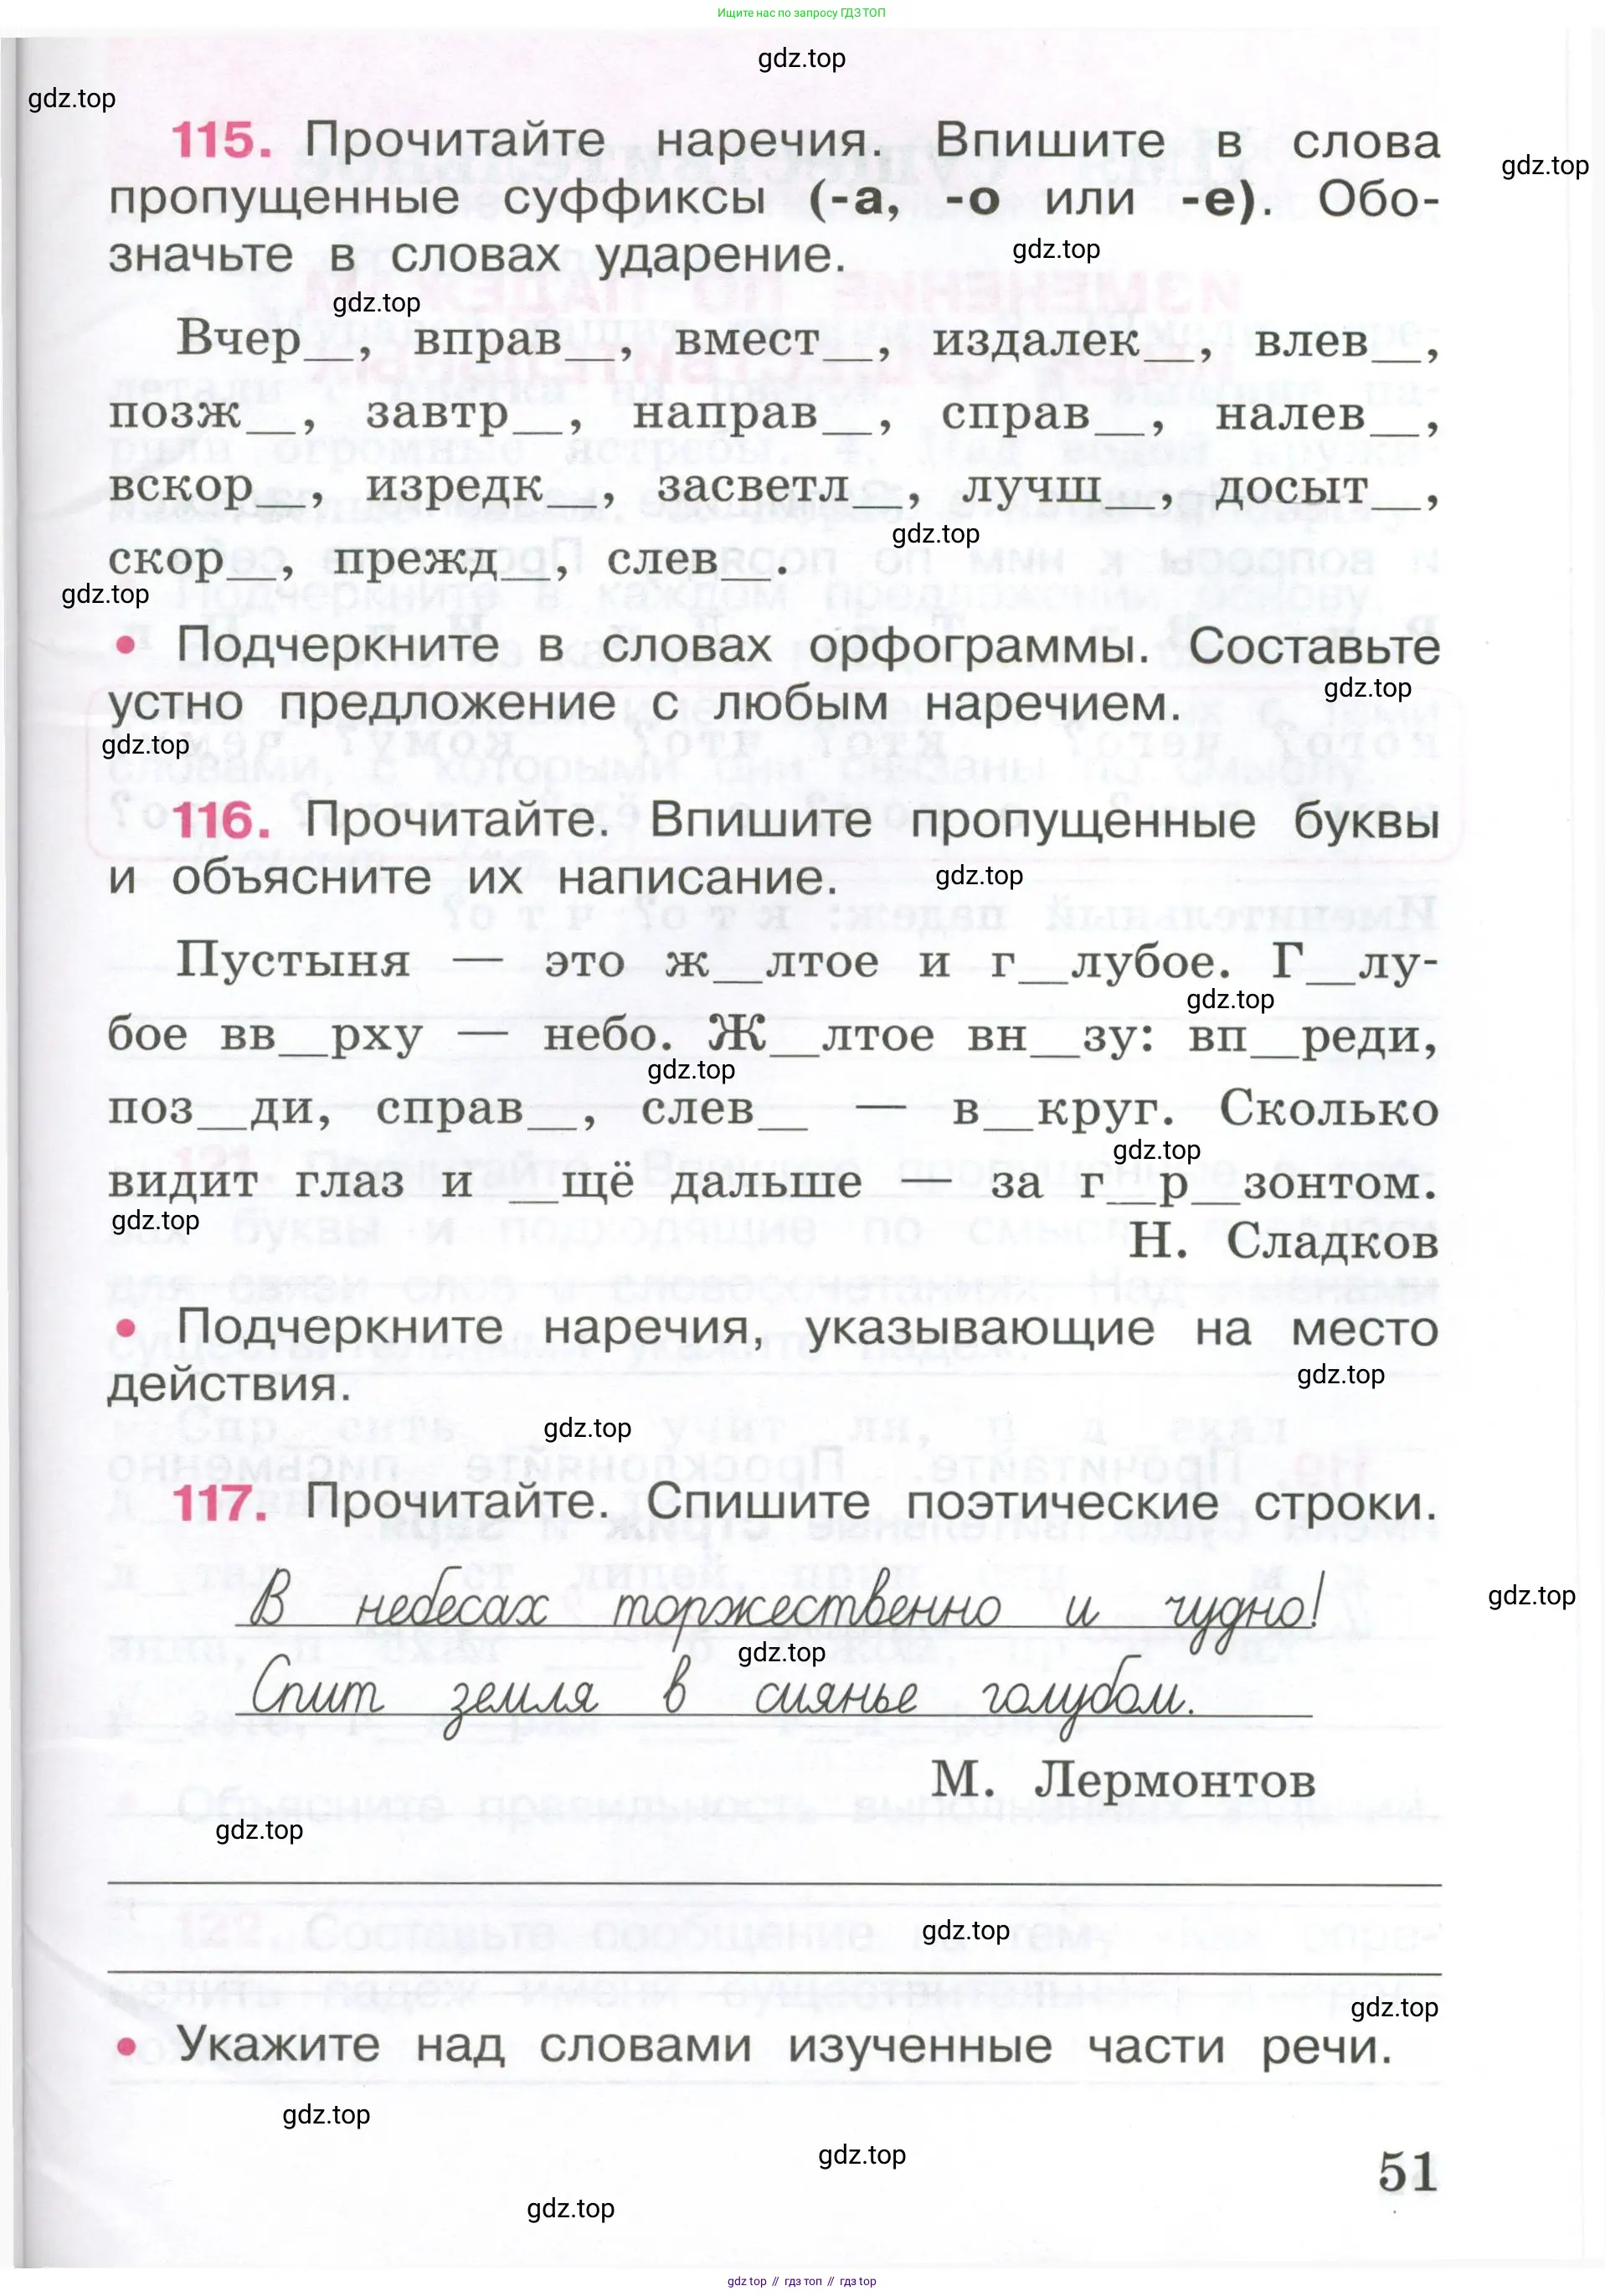 Ищите нас по запросу ГДЗ ТОП
gdz.top
gdz.top
115. Прочитайте наречия. Впишите в слова
gdz.top
пропущенные суффиксы (-а, -о или -е). Обо-
значьте в словах ударение.
gdz.top
gdz.top
Вчер__, вправ__, вмест__, издалек__, влев__,
позж__, завтр__, направ__, справ__, налев__,
вскор__, изредк__, засветл__, лучш__, досыт__,
gdz.top
скор__, прежд__, слев__.
gdz.top
• Подчеркните в словах орфограммы. Составьте
gdz.top
устно предложение с любым наречием.
gdz.top
116. Прочитайте. Впишите пропущенные буквы
и объясните их написание.
gdz.top
Пустыня — это ж__лтое и г__лубое. Г__лу-
gdz.top
бое вв__рху — небо. Ж__лтое вн__зу: вп__реди,
gdz.top
поз__ди, справ__, слев__ — в__круг. Сколько
gdz.top
видит глаз и __щё дальше — за г__р__зонтом.
gdz.top
Н. Сладков
• Подчеркните наречия, указывающие на место
gdz.top
действия.
gdz.top
117. Прочитайте. Спишите поэтические строки.
В небесах торжественно и чудно!
gdz.top
gdz.top
Спит земля в сиянье голубом.
М. Лермонтов
gdz.top
gdz.top
gdz.top
• Укажите над словами изученные части речи.
gdz.top
gdz.top
51
gdz.top
gdz top // гдз топ // гдз top